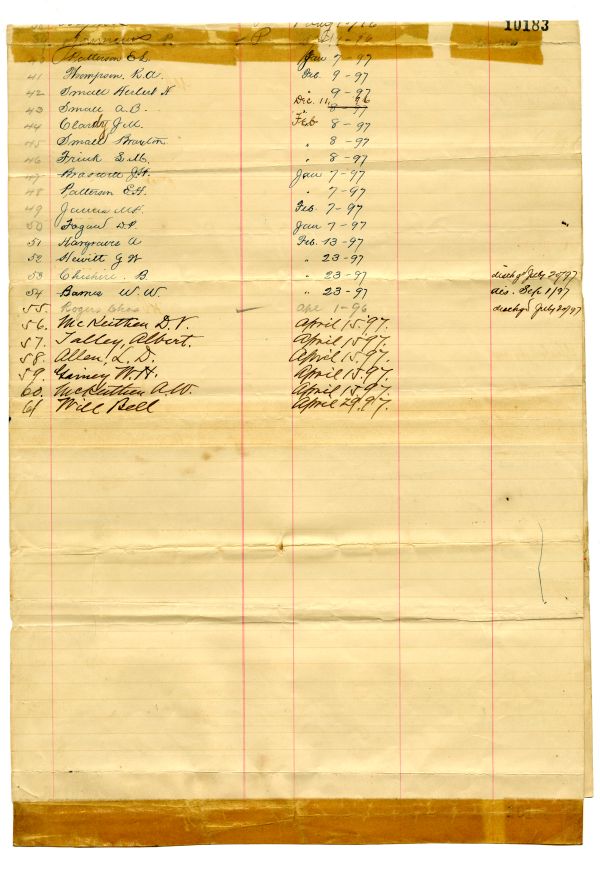 10183
40 Patterson E L Jan 7-97
41 Thompson R.A. Feb. 9-97
42 Small Herbert N " 9-97
43 Small A B. Dec. 11, 96
44 Clardy J M. Feb 8-97
45 Small Braxton " 8-97
46 Frink S M. " 8-97
47 Braswell J H. Jan 7-97
48 Patterson E H. " 7-97
49 M F. Feb. 7-97
50 D P. Jan 7-97
51 Hargraves A Feb. 13-97
52 Hewitt G W " 23-97
53 Cheshire B " 23-97 disch'g July 29/97
54 Barnes W. W. " 23-97 dis. Sept 1/97
55. Rogers Chas Apr 1-96 disch'g'd July 20/97
56. McKeithen D. V. April 15'97.
57. Talley, Albert. April 15'97.
58. Allen, L. D. April 15'97.
59. Gainey W. H. April 15.97.
60. McKeithen A. W. April 15'97.
61 Will Bell April 29.97.